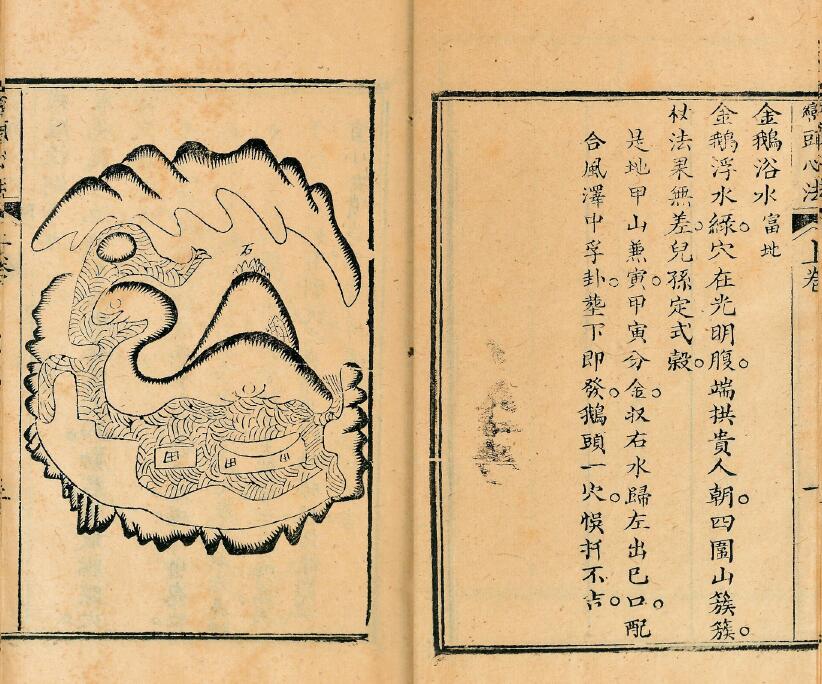 巒頭心法
上卷
一
金鵝浴水富地
金鵝浮水綠。穴在光明腹。端拱貴人朝。四圍山簇簇。
杖法果無差。兒孫定式穀。
是地甲山兼寅甲寅分金收右水歸左出巳口。配
合風澤中孚卦。塟下即發。鵝頭一穴悞扦不吉。
石
田
田
田